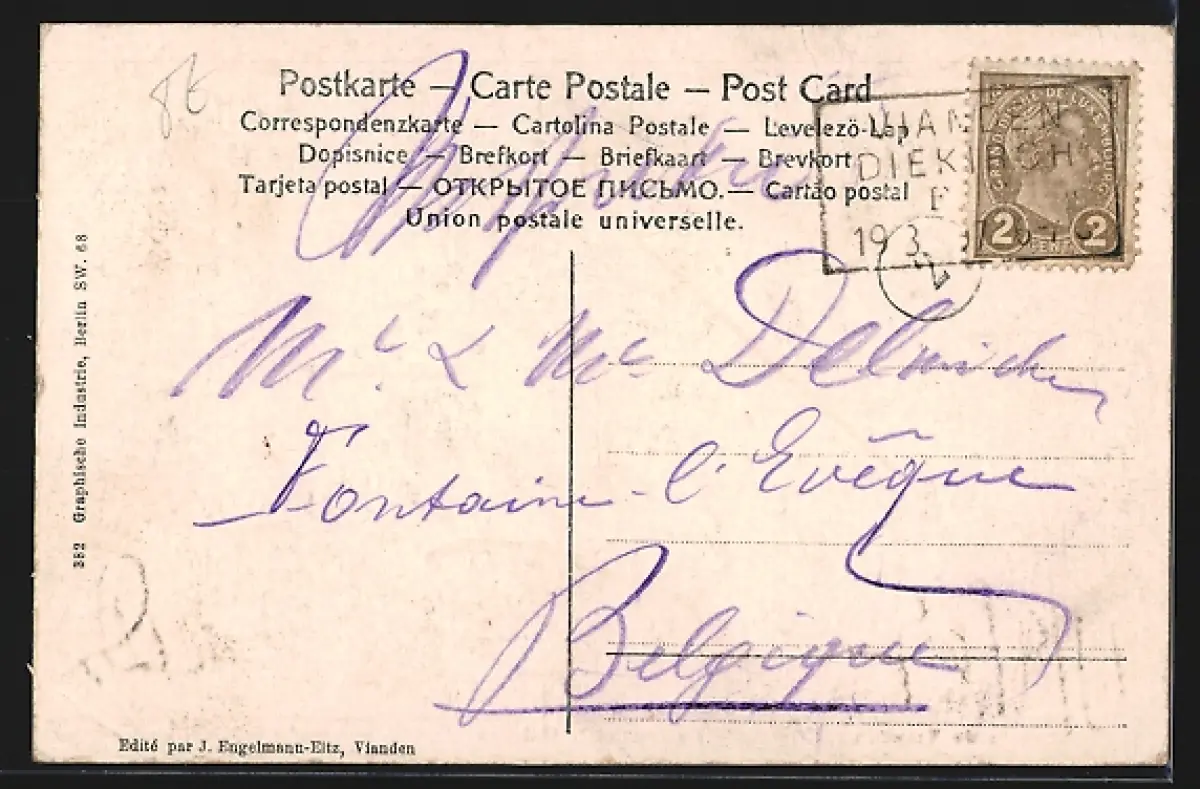 Postkarte — Carte Postale — Post Card
Correspondenzkarte — Cartolina Postale — Levelezö-Lap
Dopisnice — Brefkort — Briefkaart — Brevkort
Tarjeta postal — ОТКРЫТОЕ ПИСЬМО. — Cartão postal
Union postale universelle.
DIEK
19 3
2 CENT. 2
Mr & Me
Fontaine-l'Evêque
Belgique
382 Graphische Industrie, Berlin SW. 68
Edité par J. Engelmann-Eltz, Vianden